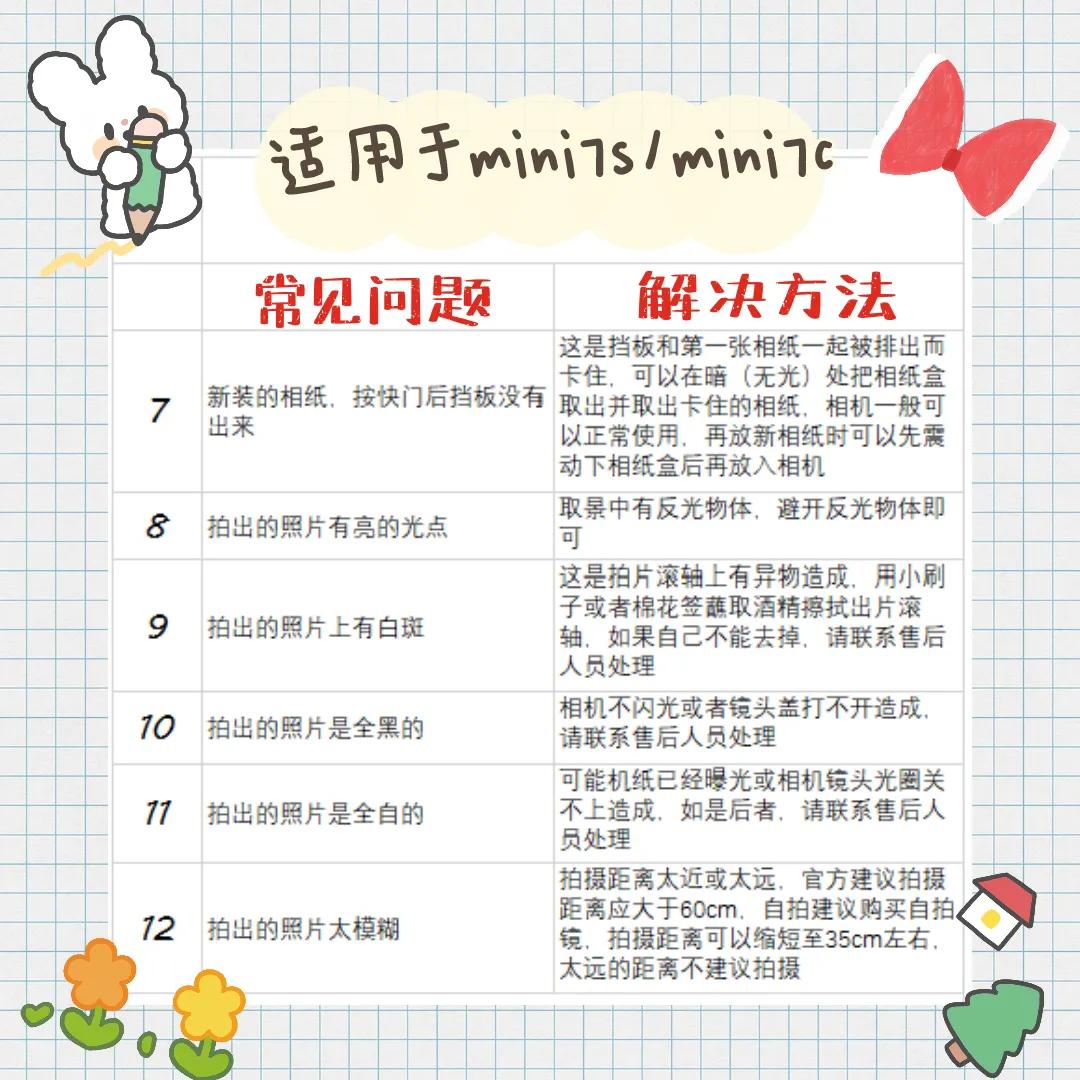 适用于mini7s/mini7c
常见问题
解决方法
7
新装的相纸，按快门后挡板没有
出来
这是挡板和第一张相纸一起被排出而
卡住，可以在暗（无光）处把相纸盒
取出并取出卡住的相纸，相机一般可
以正常使用，再放新相纸时可以先震
动下相纸盒后再放入相机
8
拍出的照片有亮的光点
取景中有反光物体，避开反光物体即
可
9
拍出的照片上有白斑
这是拍片滚轴上有异物造成，用小刷
子或者棉花签蘸取酒精擦拭出片滚
轴，如果自己不能去掉，请联系售后
人员处理
10
拍出的照片是全黑的
相机不闪光或者镜头盖打不开造成，
请联系售后人员处理
11
拍出的照片是全自的
可能机纸已经曝光或相机镜头光圈关
不上造成，如是后者，请联系售后人
员处理
12
拍出的照片太模糊
拍摄距离太近或太远，官方建议拍摄
距离应大于60cm，自拍建议购买自拍
镜，拍摄距离可以缩短至35cm左右，
太远的距离不建议拍摄